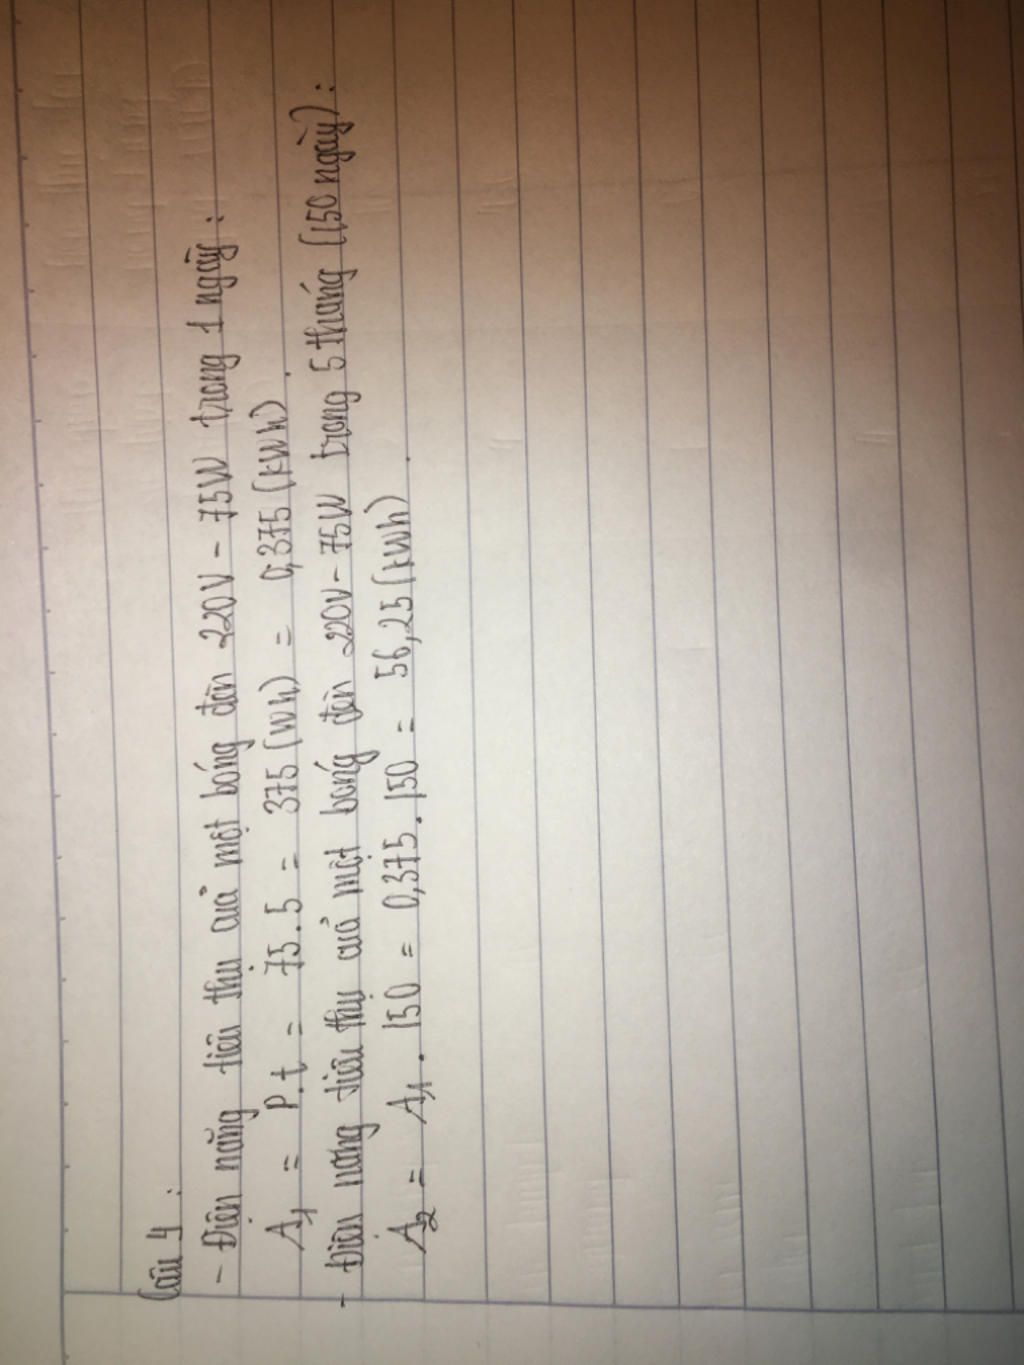 Câu 4 :
- Điện năng tiêu thụ của một bóng đèn 220V - 75W trong 1 ngày :
A1 = P.t = 75.5 = 375 (Wh) = 0,375 (kWh) .
- Điện năng tiêu thụ của một bóng đèn 220V - 75W trong 5 tháng (150 ngày) :
A2 = A1 . 150 = 0,375 . 150 = 56,25 (kWh) .